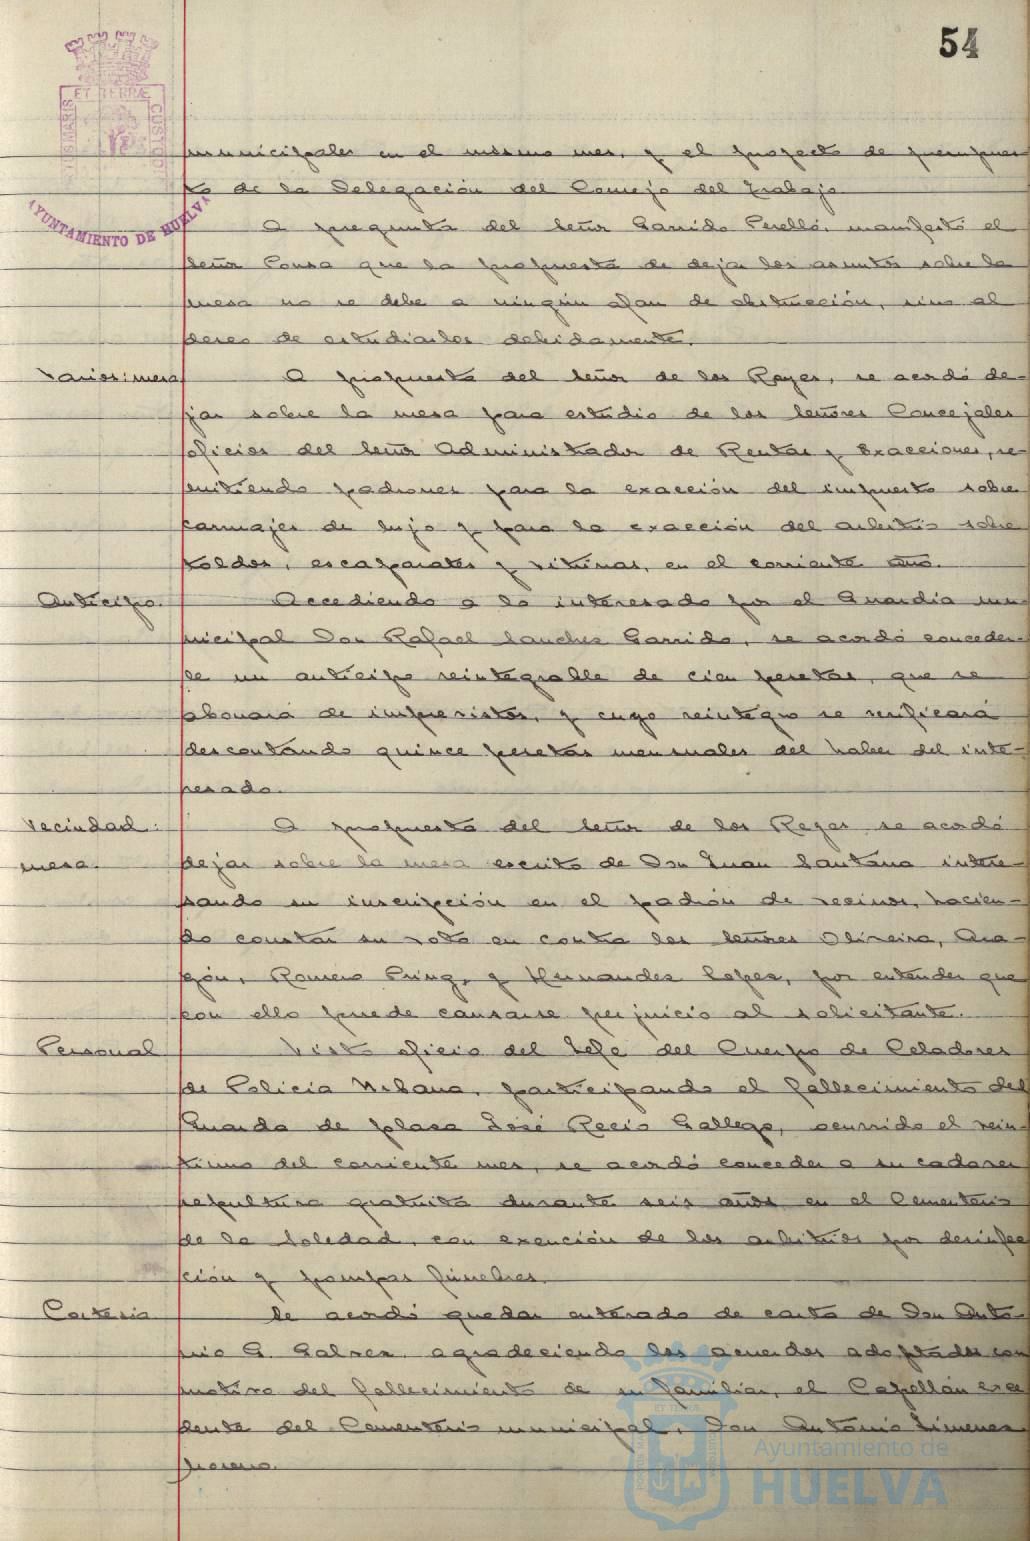 54
ET TERRÆ
CUSTODIA
AYUNTAMIENTO DE HUELVA
municipales en el mismo mes, y el proyecto de presupues
to de la Delegación del Consejo del Trabajo.
A pregunta del señor Garrido Perelló, manifestó el
señor Ponsa que la propuesta de dejar los asuntos sobre la
mesa no se debe a ningún afan de obstrucción, sino al
deseo de estudiarlos debidamente.
Varios: mesa
A propuesta del señor de los Reyes, se acordó de-
jar sobre la mesa para estudio de los señores Concejales
oficios del señor Administrador de Rentas y Exacciones, re-
mitiendo padrones para la exacción del impuesto sobre
carruajes de lujo y para la exacción del arbitrio sobre
toldos, escaparates y vitrinas, en el corriente año.
Anticipo.
Accediendo a lo interesado por el Guardia mu-
nicipal Don Rafael Sanchez Garrido, se acordó conceder-
le un anticipo reintegrable de cien pesetas, que se
abonará de imprevistos, y cuyo reintegro se verificará
descontando quince pesetas mensuales del haber del inte-
resado.
Vecindad:
mesa.
A propuesta del señor de los Reyes, se acordó
dejar sobre la mesa escrito de Don Juan Santana intere-
sando su inscripción en el padrón de vecinos, hacien-
do constar su voto en contra los señores Oliveira, Ara-
gón, Romero Pring, y Hernandez Lopez, por entender que
con ello puede causarse perjuicio al solicitante.
Personal
Visto oficio del Jefe del Cuerpo de Celadores
de Policia Urbana, participando el fallecimiento del
Guarda de plaza José Recio Gallego, ocurrido el vein-
tiuno del corriente mes, se acordó conceder a su cadaver
sepultura gratuita durante seis años en el Cementerio
de la Soledad, con exención de los arbitrios por desinfec
ción y pompas fúnebres.
Cortesia
Se acordó quedar enterado de carta de Don Anto-
nio G. Galvez, agradeciendo los acuerdos adoptados con
motivo del fallecimiento de su familiar, el Capellán exce
dente del Cementerio municipal, Don Antonio Jimenez
Moreno.
Ayuntamiento de
HUELVA